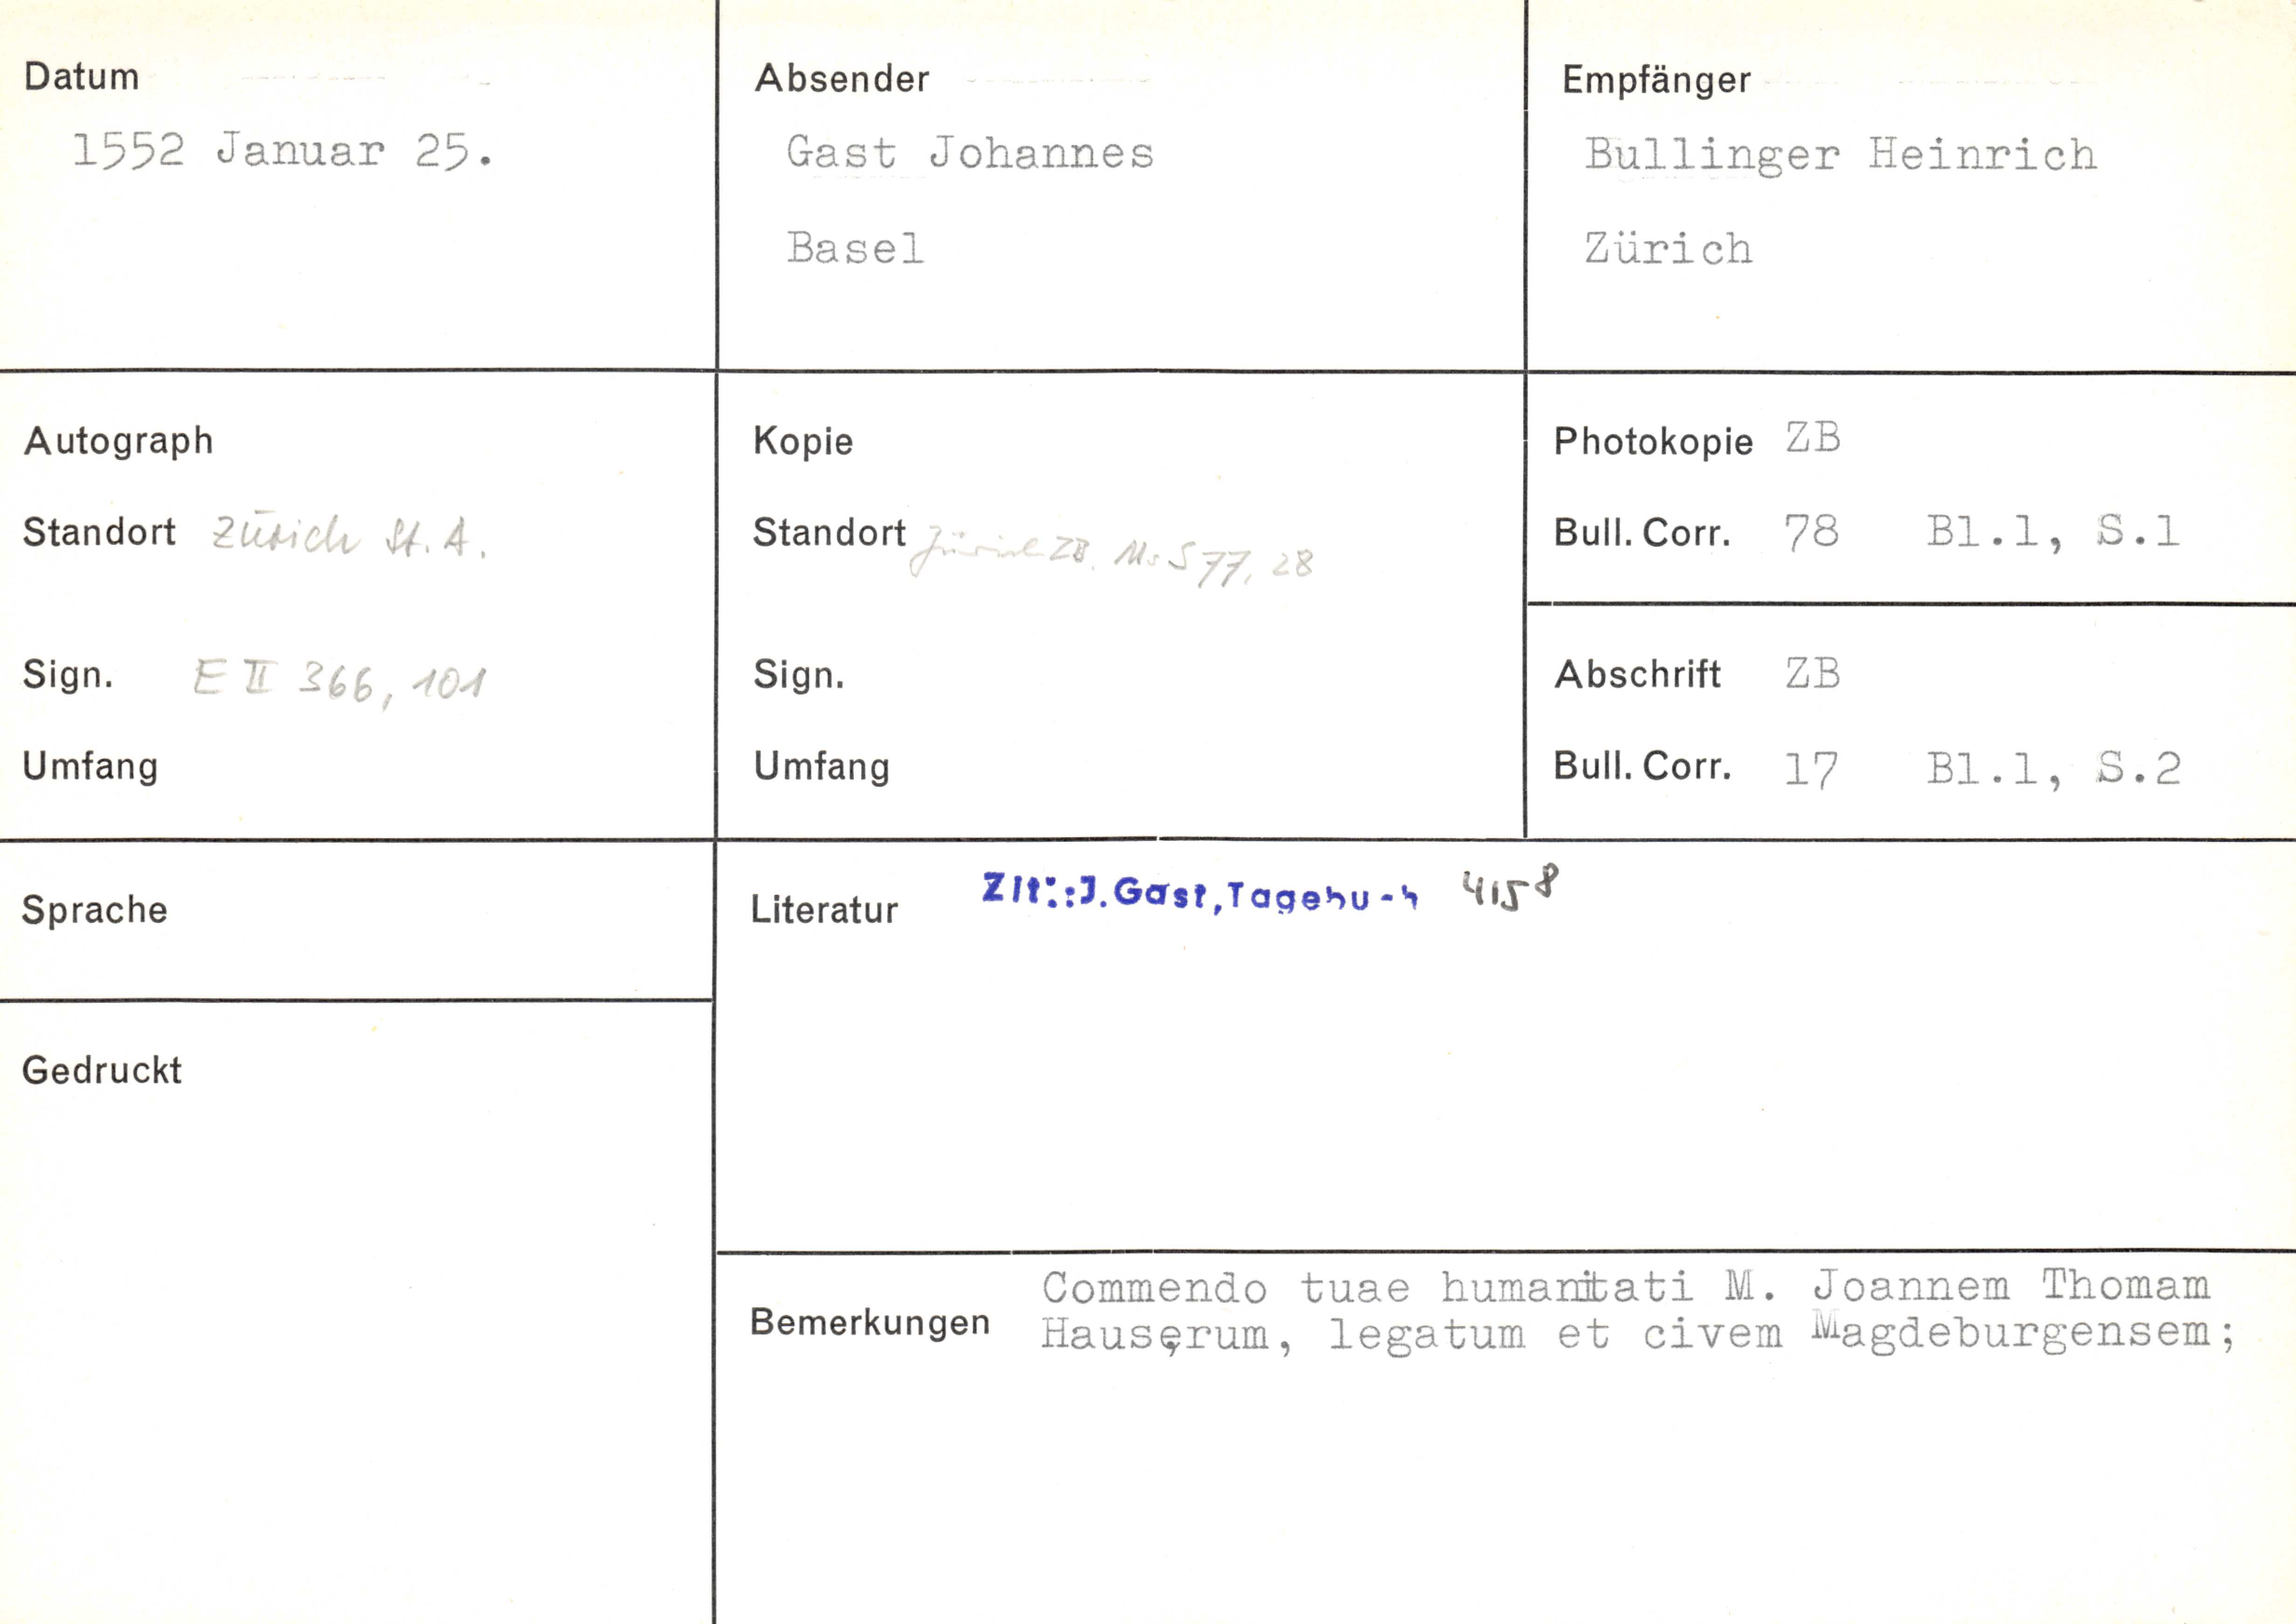 Datum
1552 Januar 25.
Absender
Gast Johannes
Basel
Empfänger
Bullinger Heinrich
Zürich
Autograph
Standort Zürich St. A.
Sign. E II 366, 101
Umfang
Kopie
Standort Zürich ZB. Ms S 77, 28
Sign.
Umfang
Photokopie ZB
Bull. Corr. 78 Bl.1, S.1
Abschrift ZB
Bull. Corr. 17 Bl.1, S.2
Sprache
Gedruckt
Literatur Zit.: J. Gast, Tagebuch 4158
Bemerkungen Commendo tuae humanitati M. Joannem Thomam
Hauserum, legatum et civem Magdeburgensem;